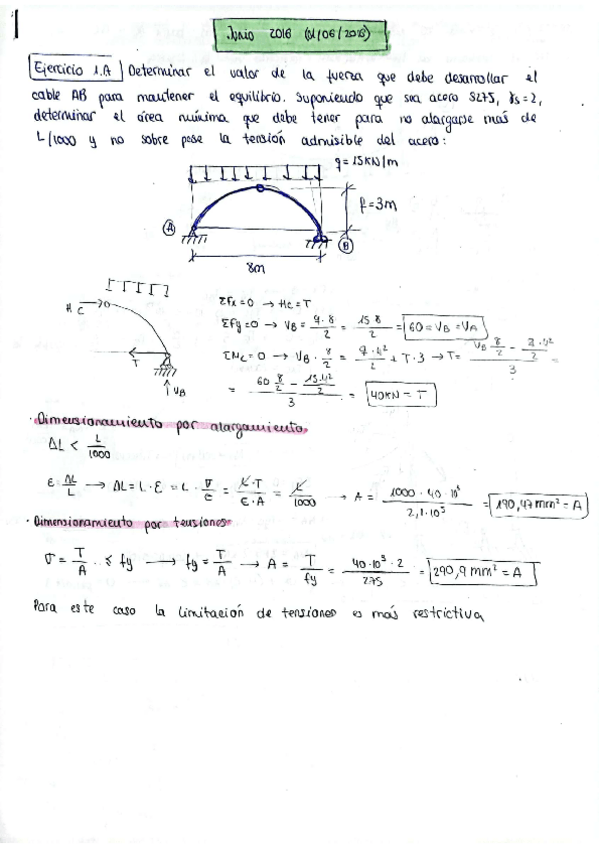 Junio 2016 (01/06/2016)
Ejercicio 1.A Determinar el valor de la fuerza que debe desarrollar el
cable AB para mantener el equilibrio. Suponiendo que sea acero S275, γs=2,
determinar el área mínima que debe tener para no alargarse más de
L/1000 y no sobre pase la tensión admisible del acero:
q=15KN/m
f=3m
A
B
8m
HC
T
VB
ΣFx=0 → Hc=T
ΣFy=0 → VB = q·8/2 = 15·8/2 = 60 = VB = VA
ΣMc=0 → VB · 8/2 = q·4²/2 + T·3 → T = (VB 8/2 - q·4²/2)/3 =
= (60 8/2 - 15·4²/2)/3 = 40KN = T
· Dimensionamiento por alargamiento
ΔL < L/1000
ε = ΔL/L → ΔL = L·ε = L·σ/E = L·T/E·A = L/1000 → A = 1000·40·10³/2,1·10⁵ = 190,47 mm² = A
· Dimensionamiento por tensiones
σ = T/A ≤ fy → fy = T/A → A = T/fy = 40·10³·2/275 = 290,9 mm² = A
Para este caso la limitación de tensiones es más restrictiva